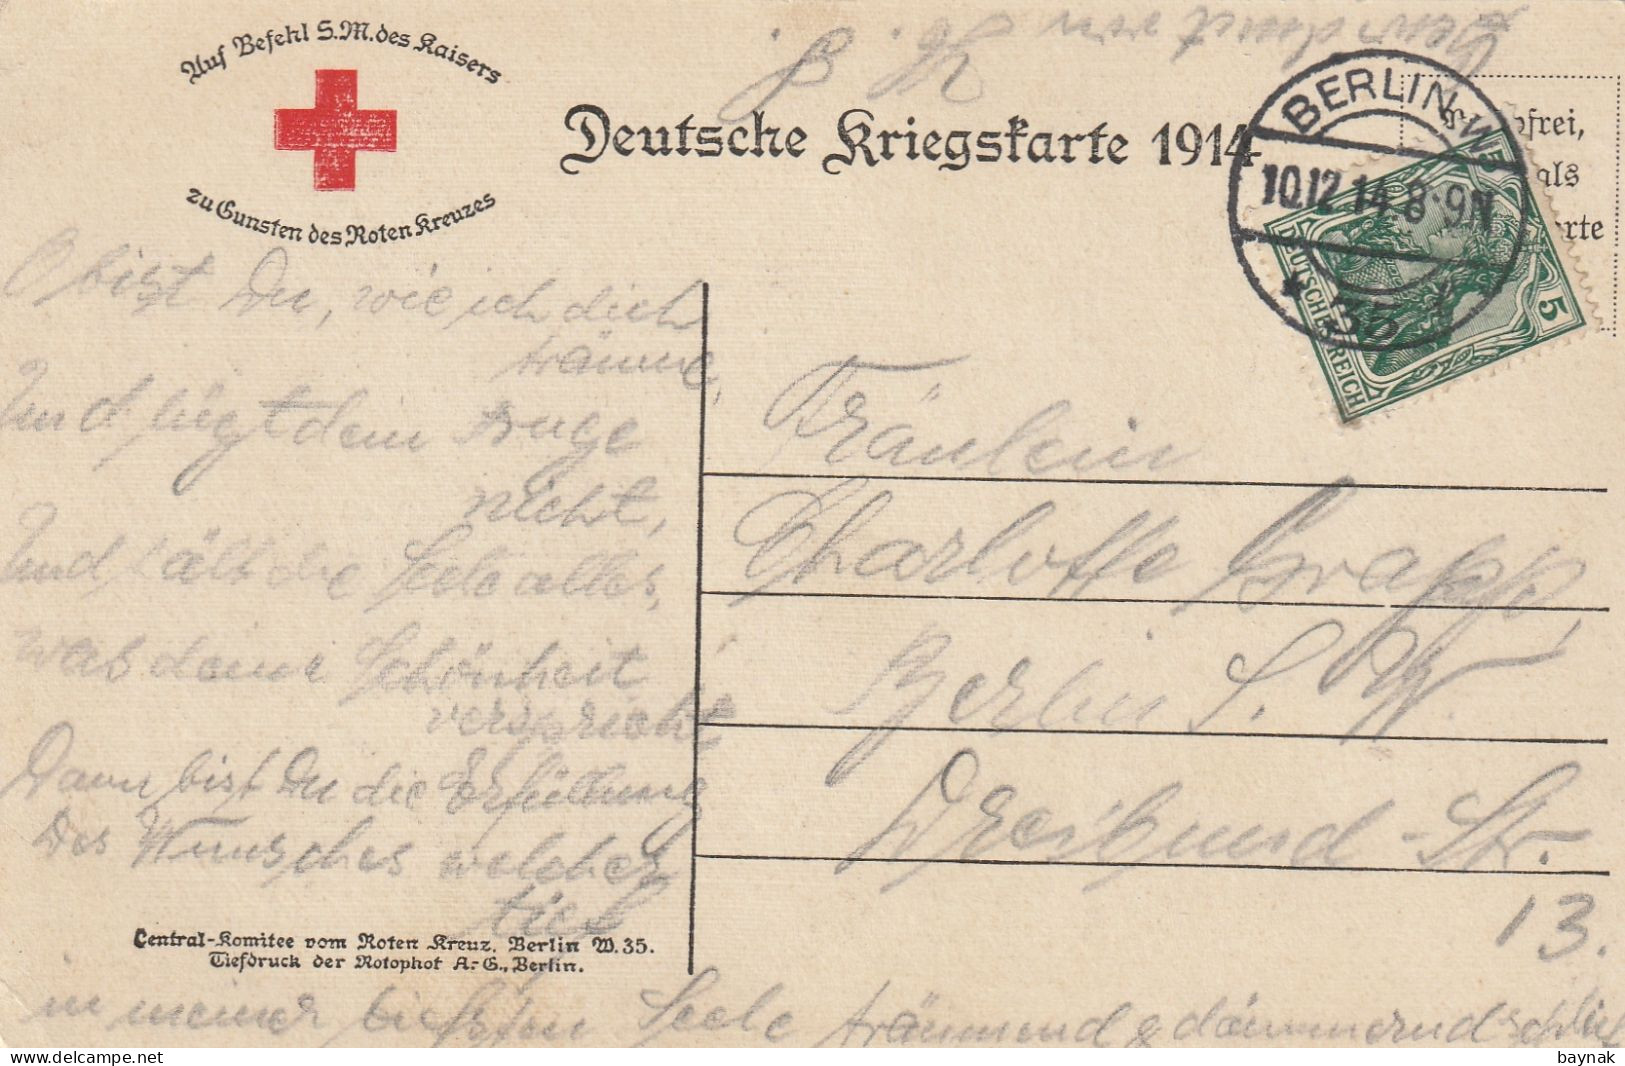 Auf Befehl S.M. des Kaisers
zu Gunsten des Roten Kreuzes
Deutsche Kriegskarte 1914
frei,
als
rte
BERLIN W
10.12.14.8-9N
* 35
DEUTSCHES REICH
5
O bist Du, wie ich dich
träume,
Und lügt dein Auge
nicht,
Und hält die Seele alles,
was deine Schönheit
verspricht
Dann bist Du die Erfüllung
des Wunsches welcher
tief
in meiner tiefsten Seele träumend & dämmernd schlief
Fräulein
Charlotte
Berlin S. W.
Dreibund-Str.
13.
Central-Komitee vom Roten Kreuz. Berlin W. 35.
Tiefdruck der Rotophot A.-G., Berlin.
baynak